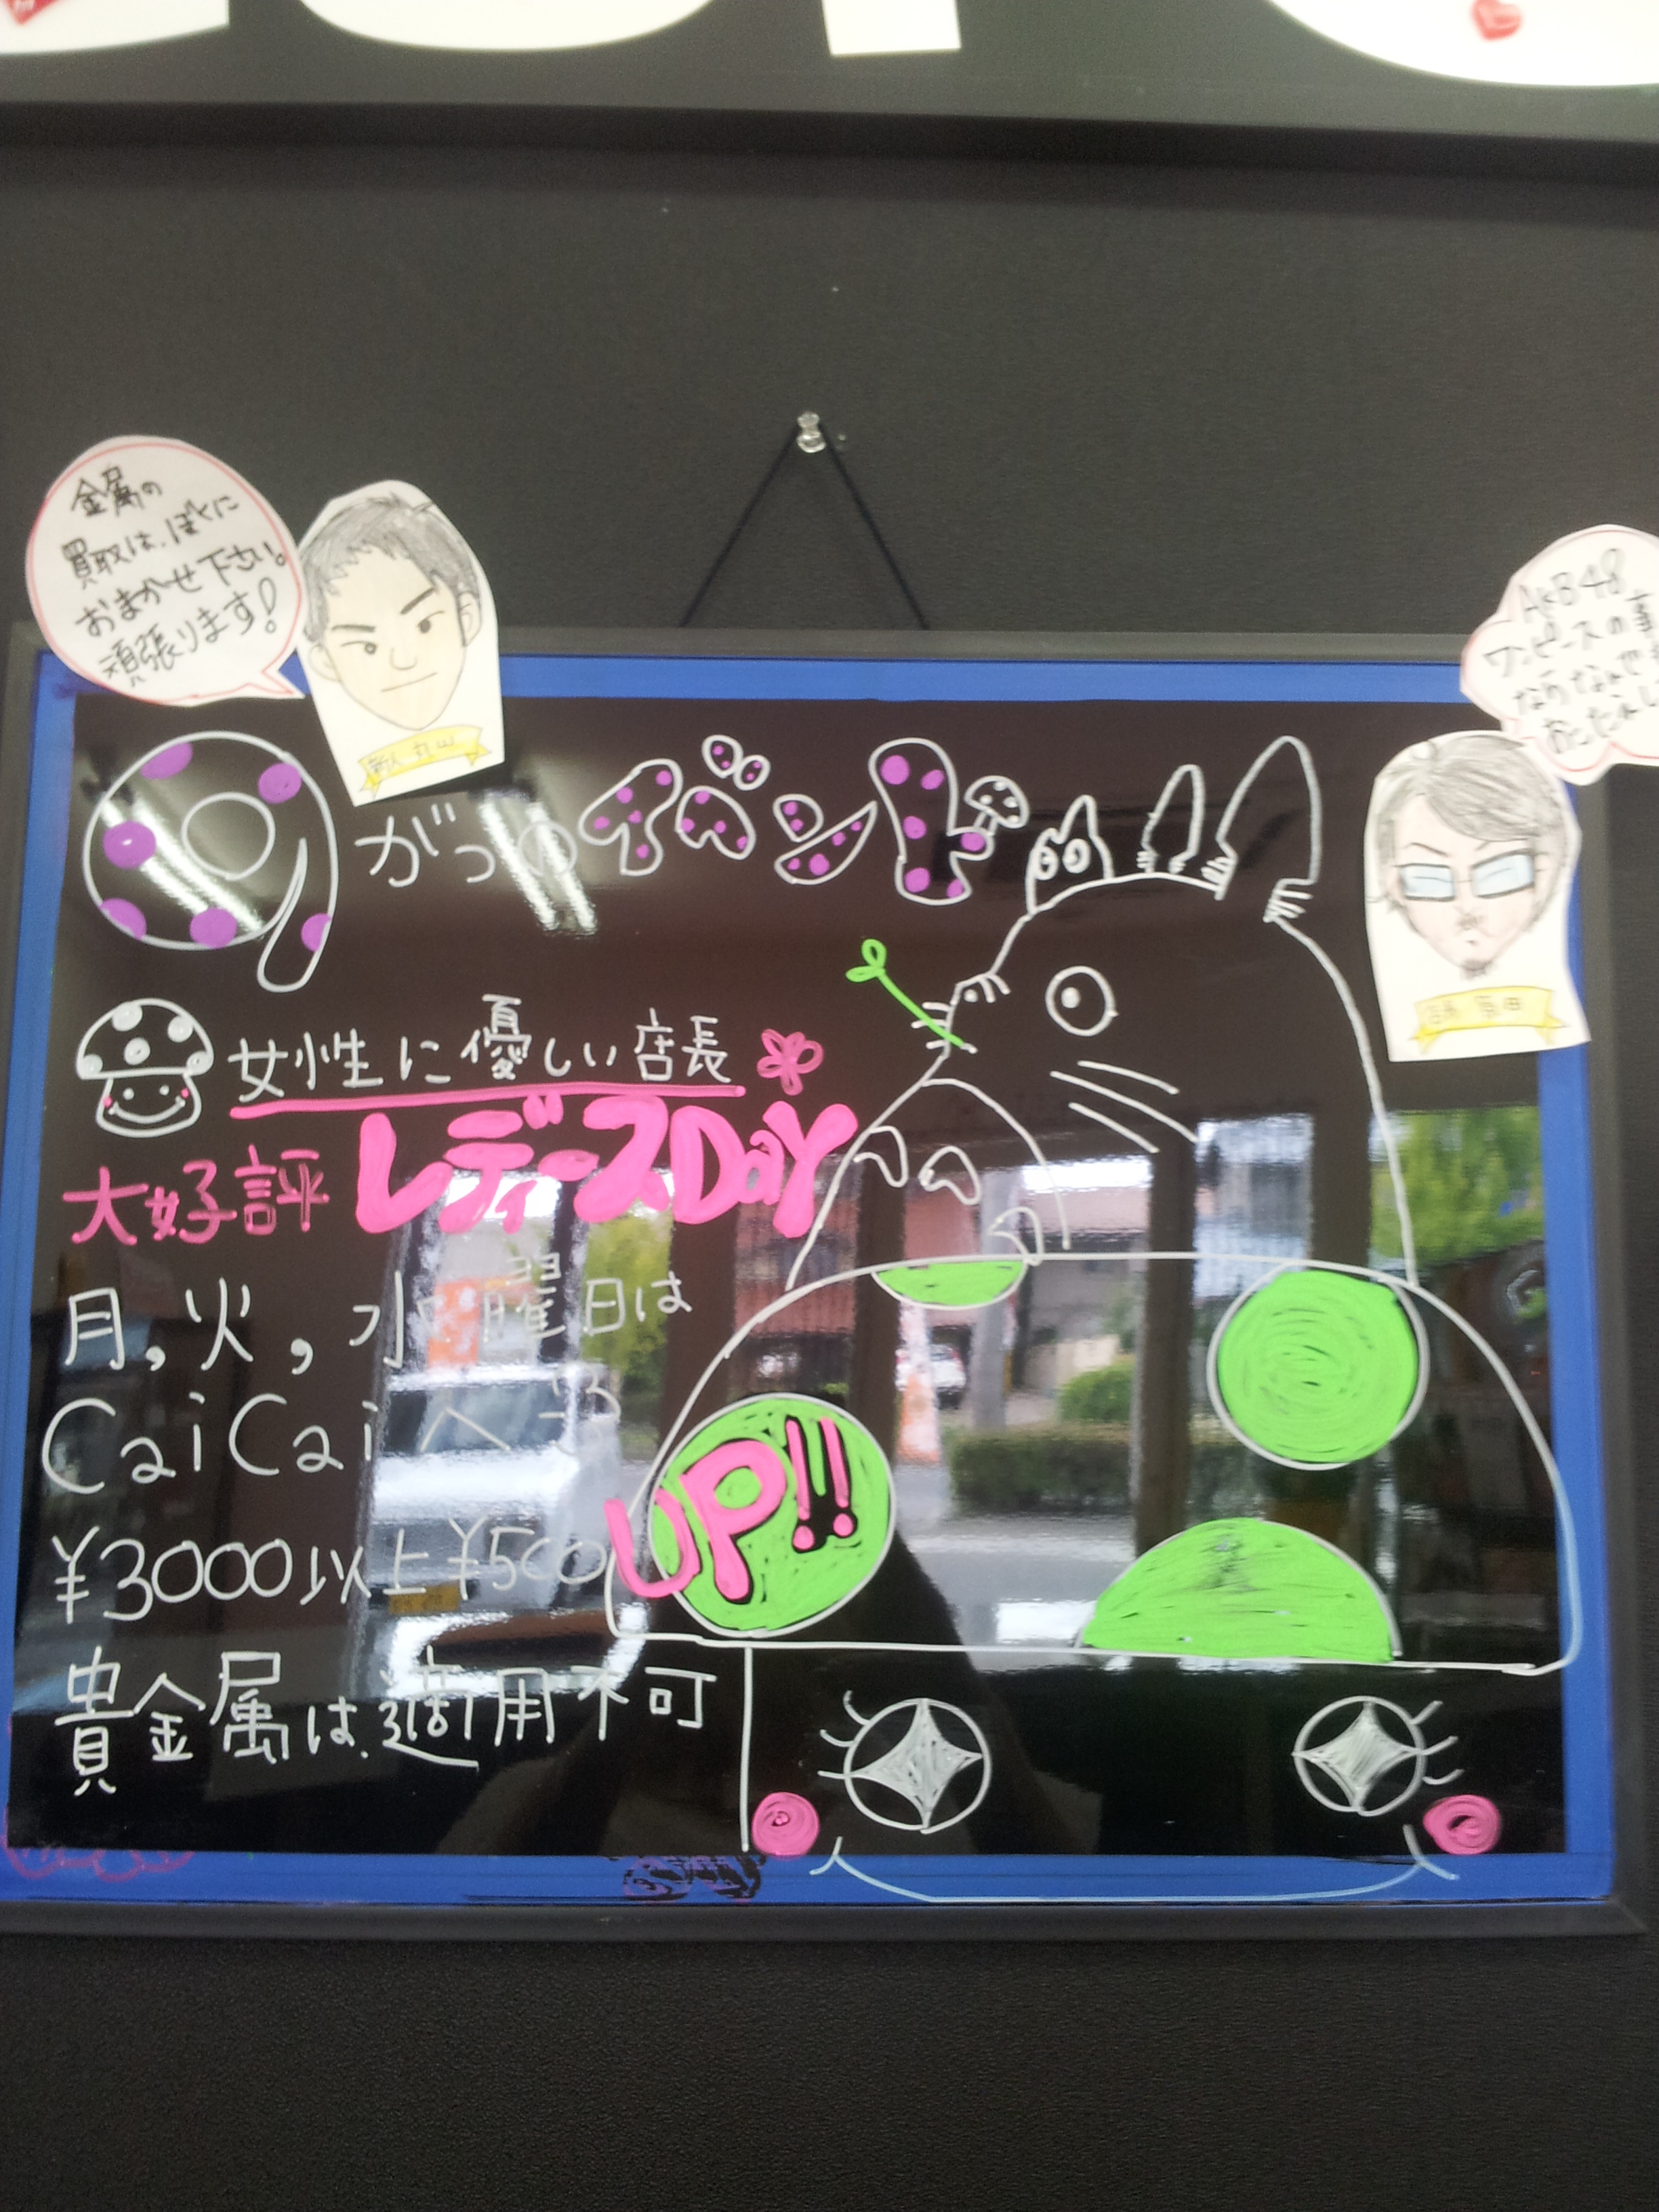 金属の
買取は、ぼくに
おまかせ下さい。
頑張ります!
新人 丸山
AKB48
ワンピースの事
ならなんでも
9がつのイベント
女性に優しい店長
大好評 レディースDaY
月,火,水曜日は
CaiCaiへ
¥3000以上¥500UP!!
貴金属は、適用不可